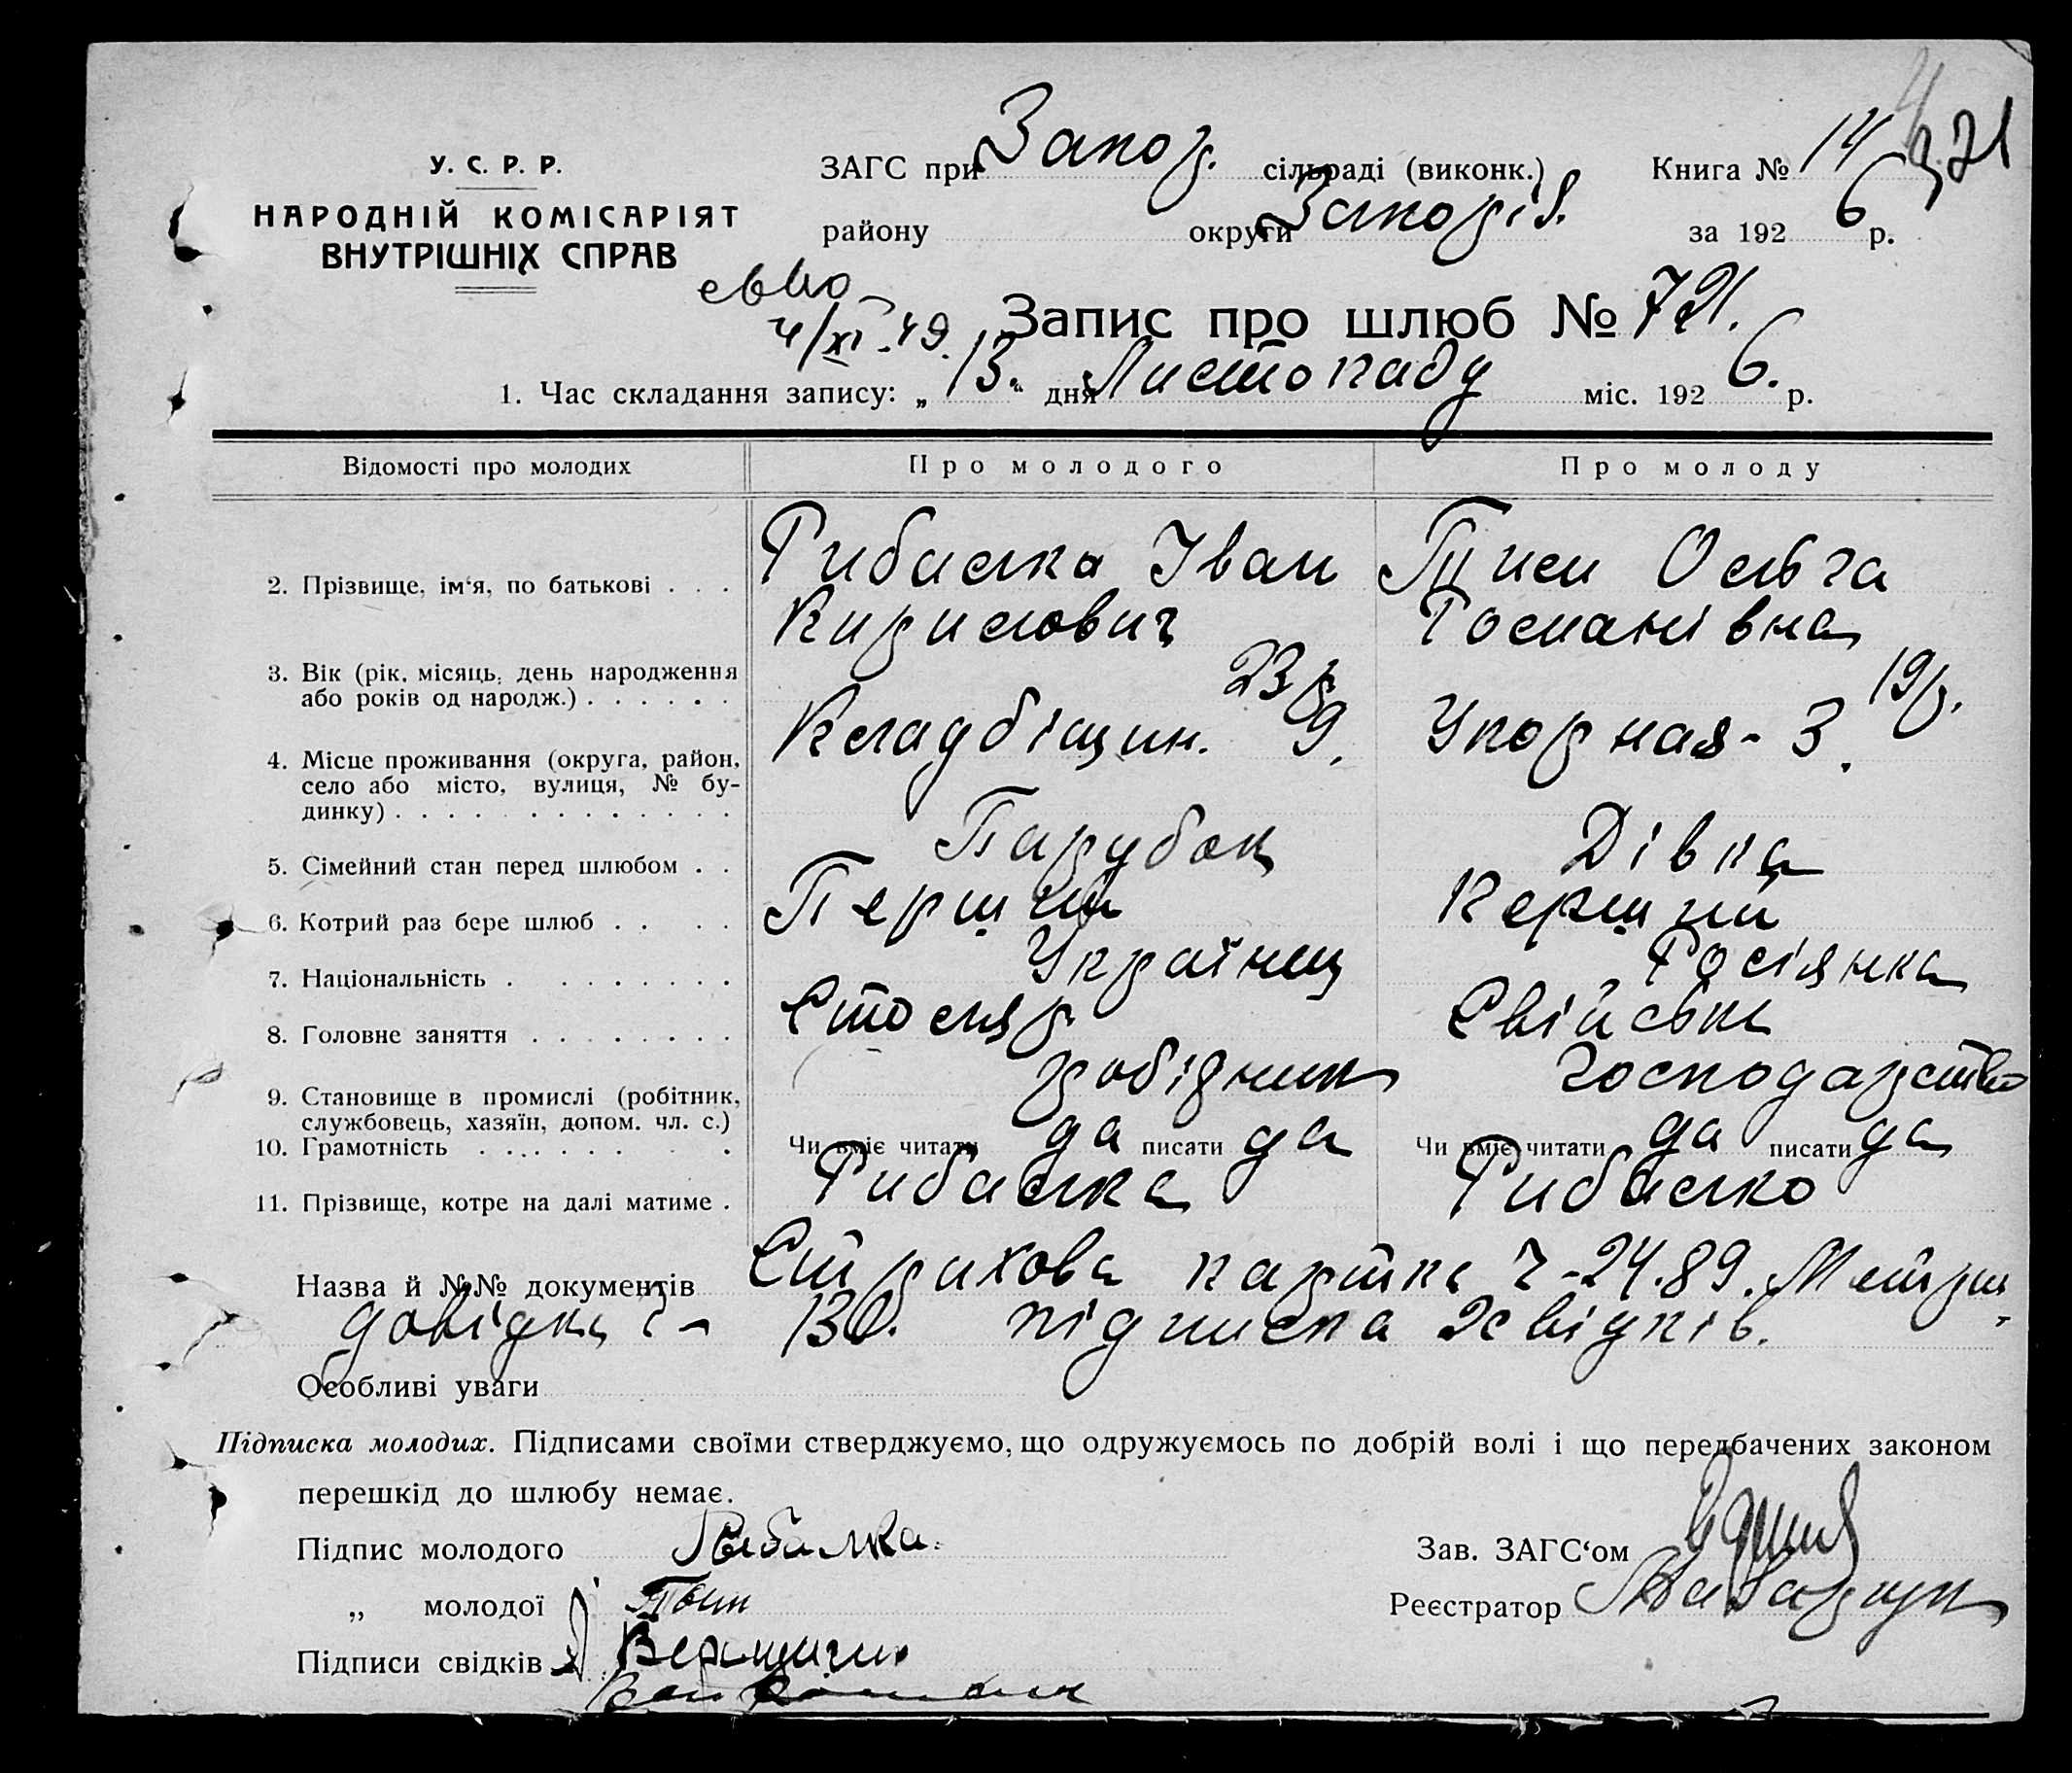 У. С. Р. Р.
НАРОДНІЙ КОМІСАРІЯТ
ВНУТРІШНІХ СПРАВ
ЗАГС при Запор. сільраді (виконк.) Книга № 14
району округи Запоріз. за 1926 р.
4/XI-49.
Запис про шлюб № 721.
1. Час складання запису: „13" дня Листопаду міс. 1926. р.
Відомості про молодих Про молодого Про молоду
2. Прізвище, ім‘я, по батькові . . . Рибалка Іван Кирилович Ольга Романівна
3. Вік (рік, місяць, день народження
або років од народж.) . . . . . . 23 р. 19 р.
4. Місце проживання (округа, район,
село або місто, вулиця, № бу-
динку) . . . . . . . . . . . . . Кладбіщин. 9. Упорная - 3.
5. Сімейний стан перед шлюбом . . Парубок Дівка
6. Котрий раз бере шлюб . . . . Перший Перший
7. Національність . . . . . . . . Українец Росіянка
8. Головне заняття . . . . . . . . Столяр Свійське
9. Становище в промислі (робітник,
службовець, хазяїн, допом. чл. с.) робітник господарство
10. Грамотність . . . . . . . . Чи вміє читати да писати да Чи вміє читати да писати да
11. Прізвище, котре на далі матиме . Рибалка Рибалко
Назва й №№ документів Страхова картка ч-24.89. Метрич-
довідка ч- 130. підписка 2х свідків.
Особливі уваги
Підписка молодих. Підписами своїми стверджуємо, що одружуємось по добрій волі і що передбачених законом
перешкід до шлюбу немає.
Підпис молодого Рыбалка. Зав. ЗАГС‘ом
„ молодої Реєстратор
Підписи свідків